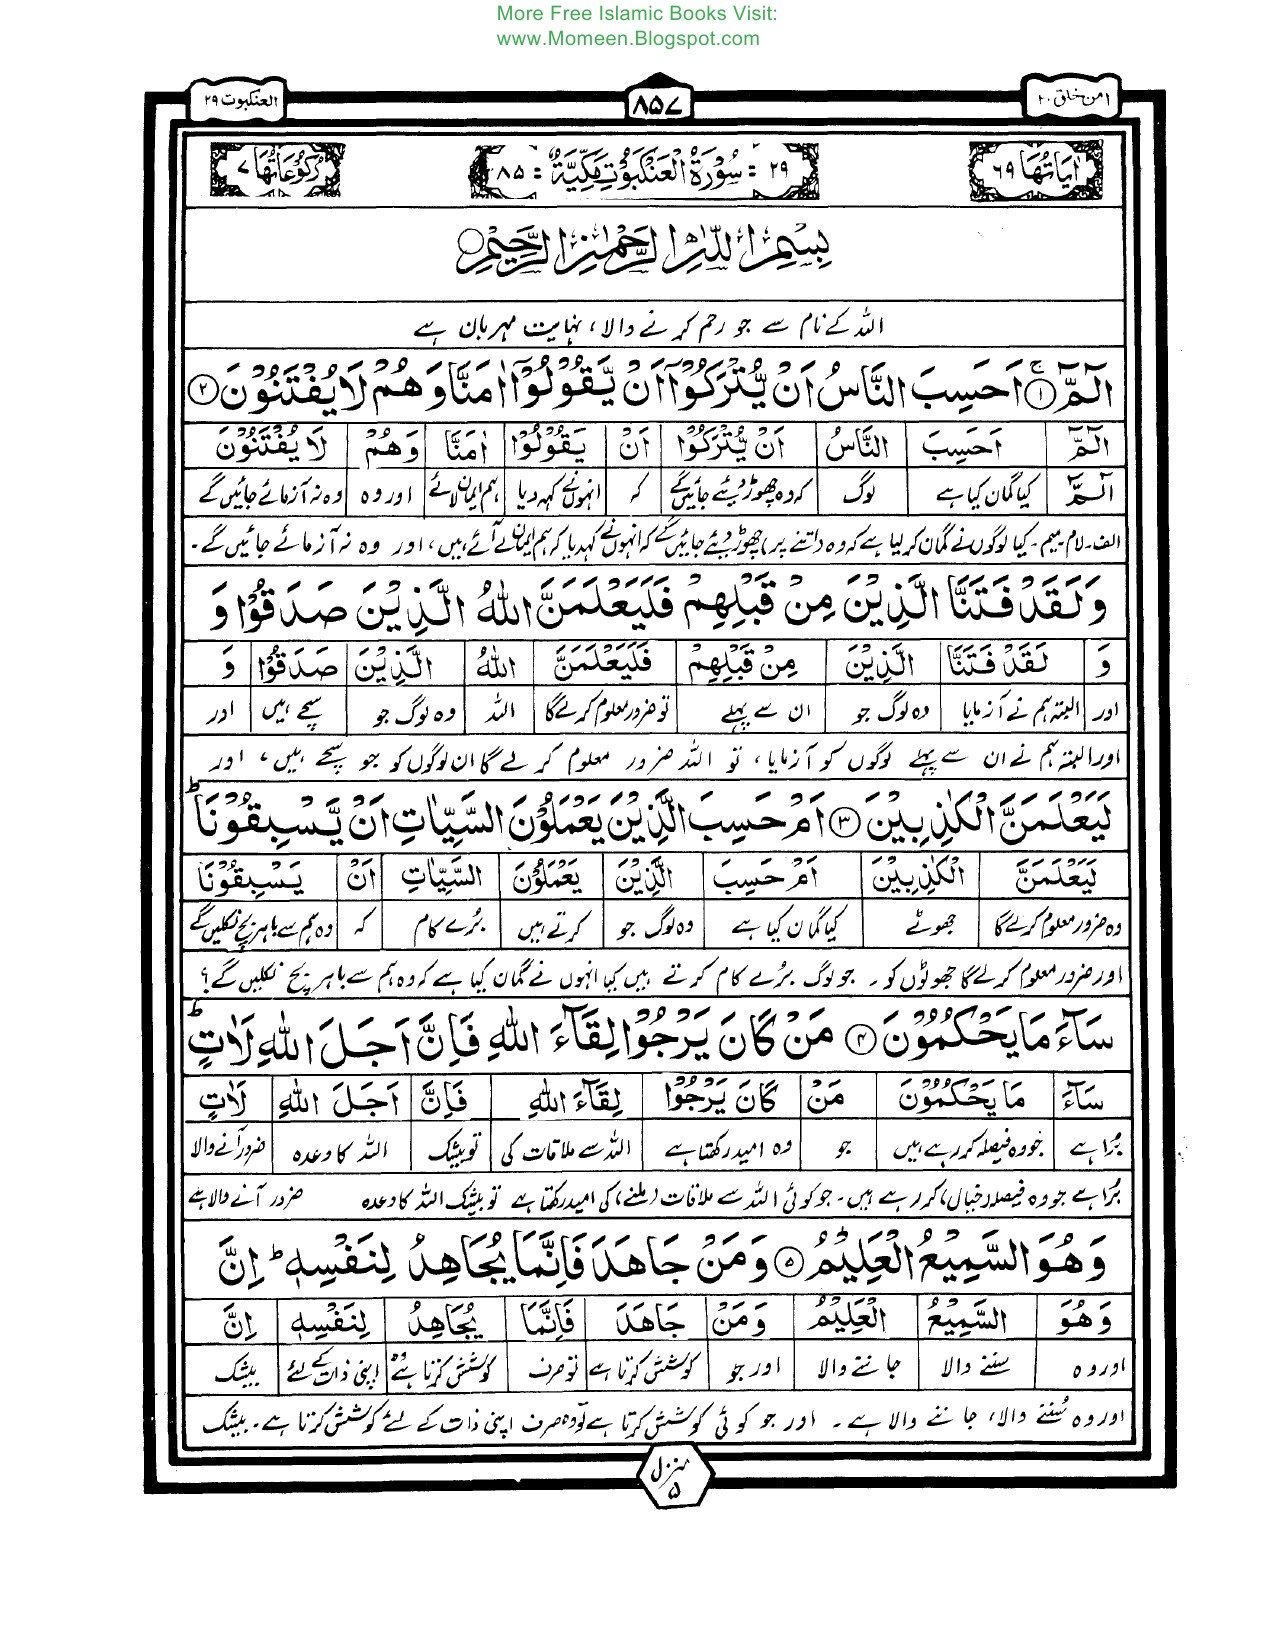 More Free Islamic Books Visit:
www.Momeen.Blogspot.com
امن خلق ۲۰ ۸۵۷ العنکبوت ۲۹
اٰیَاتُهَا ۶۹ ۲۹ = سُوْرَةُ الْعَنْكَبُوْتِ مَكِّيَّةٌ = ۸۵ رُكُوْعَاتُهَا ۷
بِسْمِ اللّٰهِ الرَّحْمٰنِ الرَّحِيْمِ
اللہ کے نام سے جو رحم کرنے والا، نہایت مہربان ہے
الٓمّٓ ۚ﴿۱﴾ اَحَسِبَ النَّاسُ اَنْ يُّتْرَكُوْۤا اَنْ يَّقُوْلُوْۤا اٰمَنَّا وَهُمْ لَا يُفْتَنُوْنَ ﴿۲﴾
الٓمّٓ اَحَسِبَ النَّاسُ اَنْ يُّتْرَكُوْۤا اَنْ يَقُوْلُوْۤا اٰمَنَّا وَهُمْ لَا يُفْتَنُوْنَ
الٓمّٓ کیا گمان کیا ہے لوگ کہ وہ چھوڑ دیئے جائیں گے کہ انہوں نے کہہ دیا ہم ایمان لائے اور وہ وہ نہ آزمائے جائیں گے
الف۔ لام۔ میم۔ کیا لوگوں نے گمان کر لیا ہے کہ وہ (اتنے پر) چھوڑ دیئے جائیں گے کہ انہوں نے کہدیا کہ ہم ایمان لے آئے ہیں، اور وہ نہ آزمائے جائیں گے۔
وَلَقَدْ فَتَنَّا الَّذِيْنَ مِنْ قَبْلِهِمْ فَلَيَعْلَمَنَّ اللّٰهُ الَّذِيْنَ صَدَقُوْا وَ
وَ لَقَدْ فَتَنَّا الَّذِيْنَ مِنْ قَبْلِهِمْ فَلَيَعْلَمَنَّ اللّٰهُ الَّذِيْنَ صَدَقُوْا وَ
اور البتہ ہم نے آزمایا وہ لوگ جو ان سے پہلے تو ضرور معلوم کرلے گا اللہ وہ لوگ جو سچے ہیں اور
اور البتہ ہم نے ان سے پہلے لوگوں کو آزمایا، تو اللہ ضرور معلوم کر لے گا ان لوگوں کو جو سچے ہیں، اور
لَيَعْلَمَنَّ الْكٰذِبِيْنَ ﴿۳﴾ اَمْ حَسِبَ الَّذِيْنَ يَعْمَلُوْنَ السَّيِّاٰتِ اَنْ يَّسْبِقُوْنَا ؕ
لَيَعْلَمَنَّ الْكٰذِبِيْنَ اَمْ حَسِبَ الَّذِيْنَ يَعْمَلُوْنَ السَّيِّاٰتِ اَنْ يَسْبِقُوْنَا
وہ ضرور معلوم کرلے گا جھوٹے کیا گمان کیا ہے وہ لوگ جو کرتے ہیں بُرے کام کہ وہ ہم سے باہر بچ نکلیں گے
اور ضرور معلوم کرلے گا جھوٹوں کو۔ جو لوگ بُرے کام کرتے ہیں کیا انہوں نے گمان کیا ہے کہ وہ ہم سے باہر بچ نکلیں گے؟
سَآءَ مَا يَحْكُمُوْنَ ﴿۴﴾ مَنْ كَانَ يَرْجُوْا لِقَآءَ اللّٰهِ فَاِنَّ اَجَلَ اللّٰهِ لَاٰتٍ ؕ
سَآءَ مَا يَحْكُمُوْنَ مَنْ كَانَ يَرْجُوْا لِقَآءَ اللّٰهِ فَاِنَّ اَجَلَ اللّٰهِ لَاٰتٍ
بُرا ہے جو وہ فیصلہ کر رہے ہیں جو وہ امید رکھتا ہے اللہ سے ملاقات کی تو بیشک اللہ کا وعدہ ضرور آنے والا
بُرا ہے جو وہ فیصلہ (خیال) کر رہے ہیں۔ جو کوئی اللہ سے ملاقات (ملنے) کی امید رکھتا ہے تو بیشک اللہ کا وعدہ ضرور آنے والا ہے
وَهُوَ السَّمِيْعُ الْعَلِيْمُ ﴿۵﴾ وَمَنْ جَاهَدَ فَاِنَّمَا يُجَاهِدُ لِنَفْسِهٖ ؕ اِنَّ
وَهُوَ السَّمِيْعُ الْعَلِيْمُ وَمَنْ جَاهَدَ فَاِنَّمَا يُجَاهِدُ لِنَفْسِهٖ اِنَّ
اور وہ سننے والا جاننے والا اور جو کوشش کرتا ہے تو صرف کوشش کرتا ہے وہ اپنی ذات کے لئے بیشک
اور وہ سُننے والا، جاننے والا ہے۔ اور جو کوئی کوشش کرتا ہے تو وہ صرف اپنی ذات کے لئے کوشش کرتا ہے۔ بیشک
منزل ۵